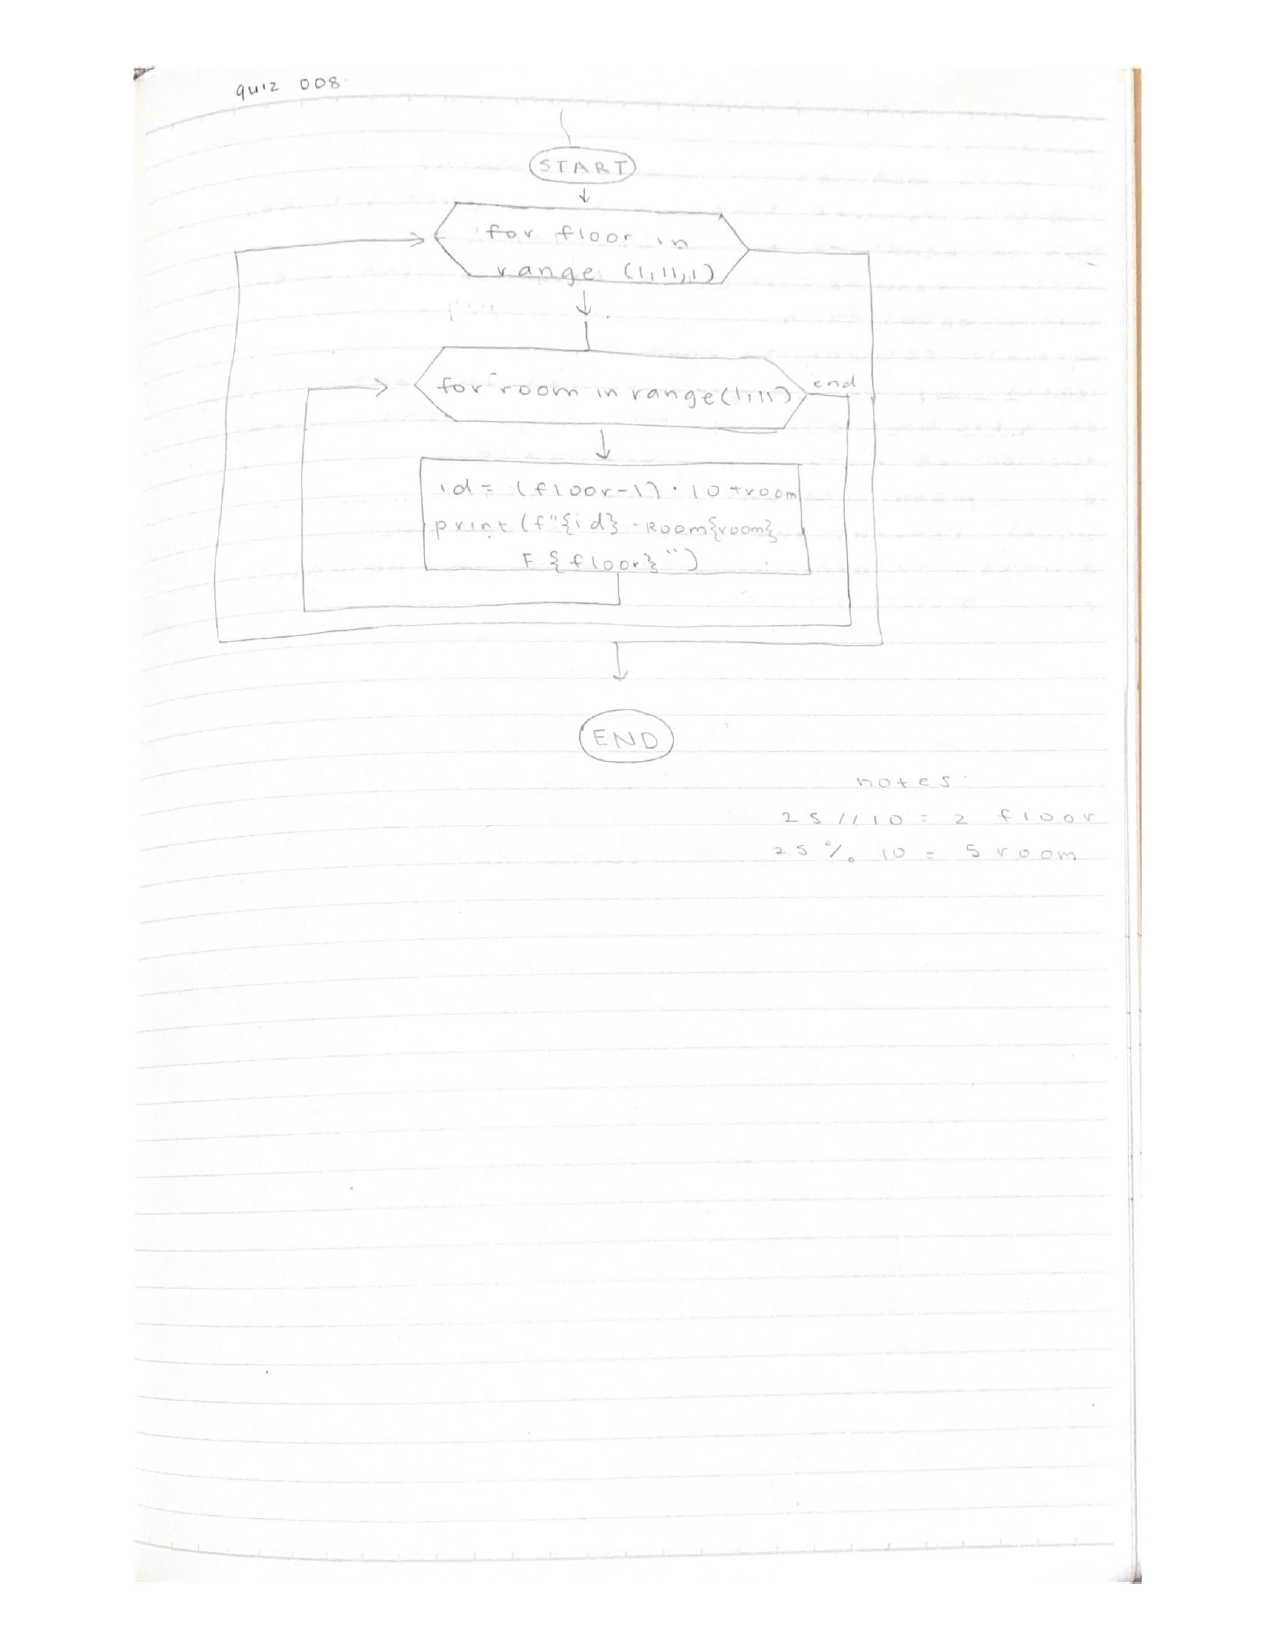 quiz 008
START
for floor in
range (1,11,1)
for room in range(1,11)
end
id = (floor-1) · 10 + room
print (f"{id} - Room{room}
F {floor}")
END
notes
25 // 10 = 2 floor
25 % 10 = 5 room